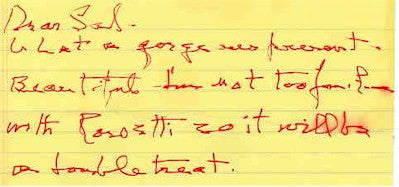 Dear Sal.
What a gorgeous present.
Beautiful I'm not too familiar
with Rossetti so it will be
a double treat.